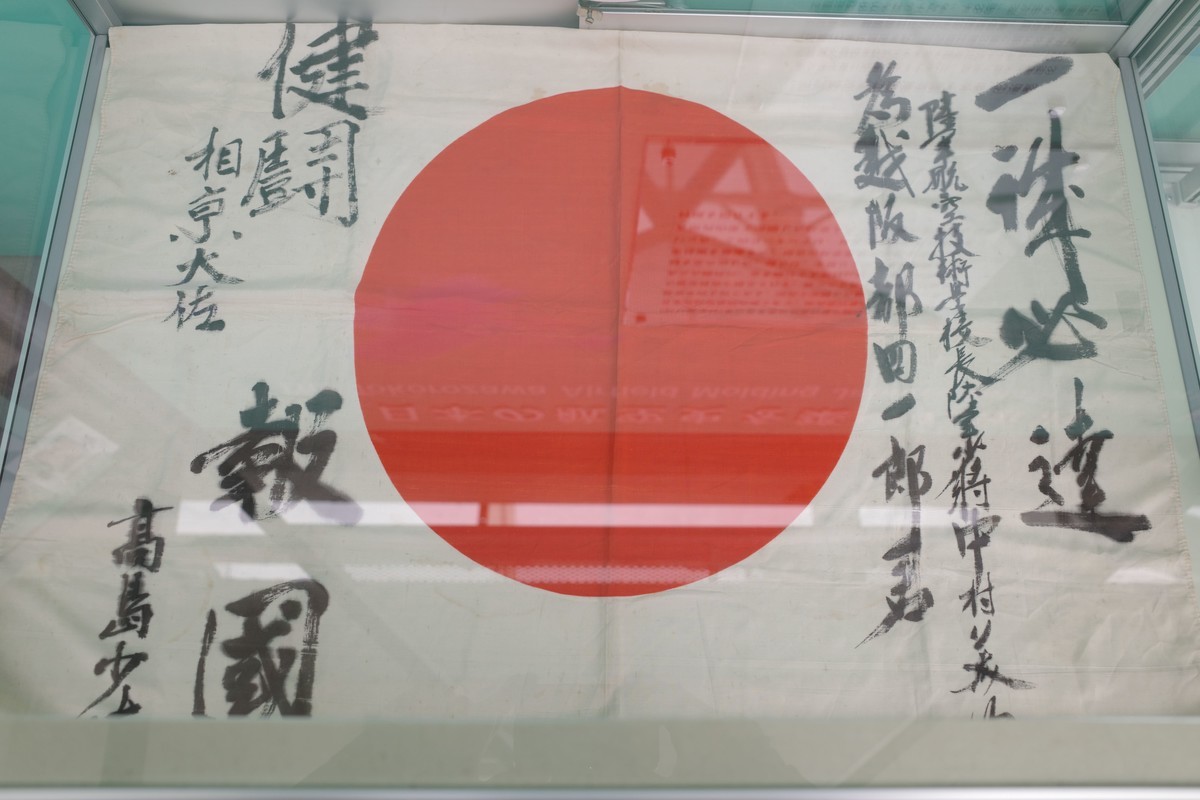 一 必達
陸軍航空技術学校長陸軍少将中村
為越阪 一郎君
健闘
相京大佐
報國
高島少